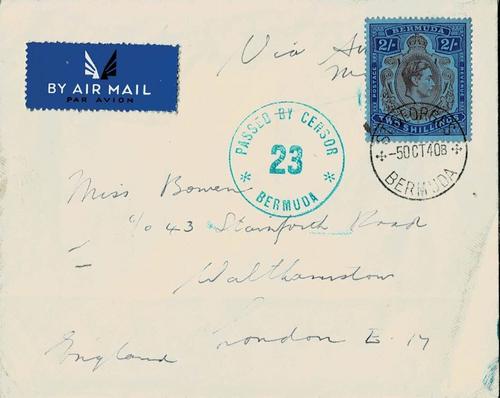 Via Air
BY AIR MAIL
PAR AVION
BERMUDA
2/- 2/-
POSTAGE
TWO SHILLINGS
-5 OCT 40 B
BERMUDA
PASSED BY CENSOR
23
BERMUDA
Miss Bowen
c/o 43 Stamforth Road
Walthamstow
London E. 17
England